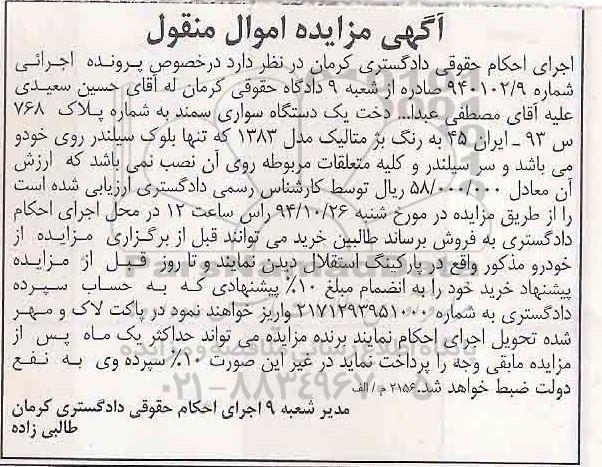 آگهی مزایده اموال منقول
اجرای احکام حقوقی دادگستری کرمان در نظر دارد درخصوص پرونده اجرائی
شماره ۹۴۰۱۰۲/۹ صادره از شعبه ۹ دادگاه حقوقی کرمان له آقای حسین سعیدی
علیه آقای مصطفی عبدا... دخت یک دستگاه سواری سمند به شماره پلاک ۷۶۸
س ۹۳ ـ ایران ۴۵ به رنگ بژ متالیک مدل ۱۳۸۳ که تنها بلوک سیلندر روی خودو
می باشد و سر سیلندر و کلیه متعلقات مربوطه روی آن نصب نمی باشد که ارزش
آن معادل ۵۸/۰۰۰/۰۰۰ ریال توسط کارشناس رسمی دادگستری ارزیابی شده است
را از طریق مزایده در مورخ شنبه ۹۴/۱۰/۲۶ راس ساعت ۱۲ در محل اجرای احکام
دادگستری به فروش برساند طالبین خرید می توانند قبل از برگزاری مزایده از
خودرو مذکور واقع در پارکینگ استقلال دیدن نمایند و تا روز قبل از مزایده
پیشنهاد خرید خود را به انضمام مبلغ ۱۰٪ پیشنهادی که به حساب سپرده
دادگستری به شماره ۲۱۷۱۲۹۳۹۵۱۰۰۰ واریز خواهند نمود در پاکت لاک و مهر
شده تحویل اجرای احکام نمایند برنده مزایده می تواند حداکثر یک ماه پس از
مزایده مابقی وجه را پرداخت نماید در غیر این صورت ۱۰٪ سپرده وی به نفع
دولت ضبط خواهد شد. ۲۱۵۶ م / الف
مدیر شعبه ۹ اجرای احکام حقوقی دادگستری کرمان
طالبی زاده